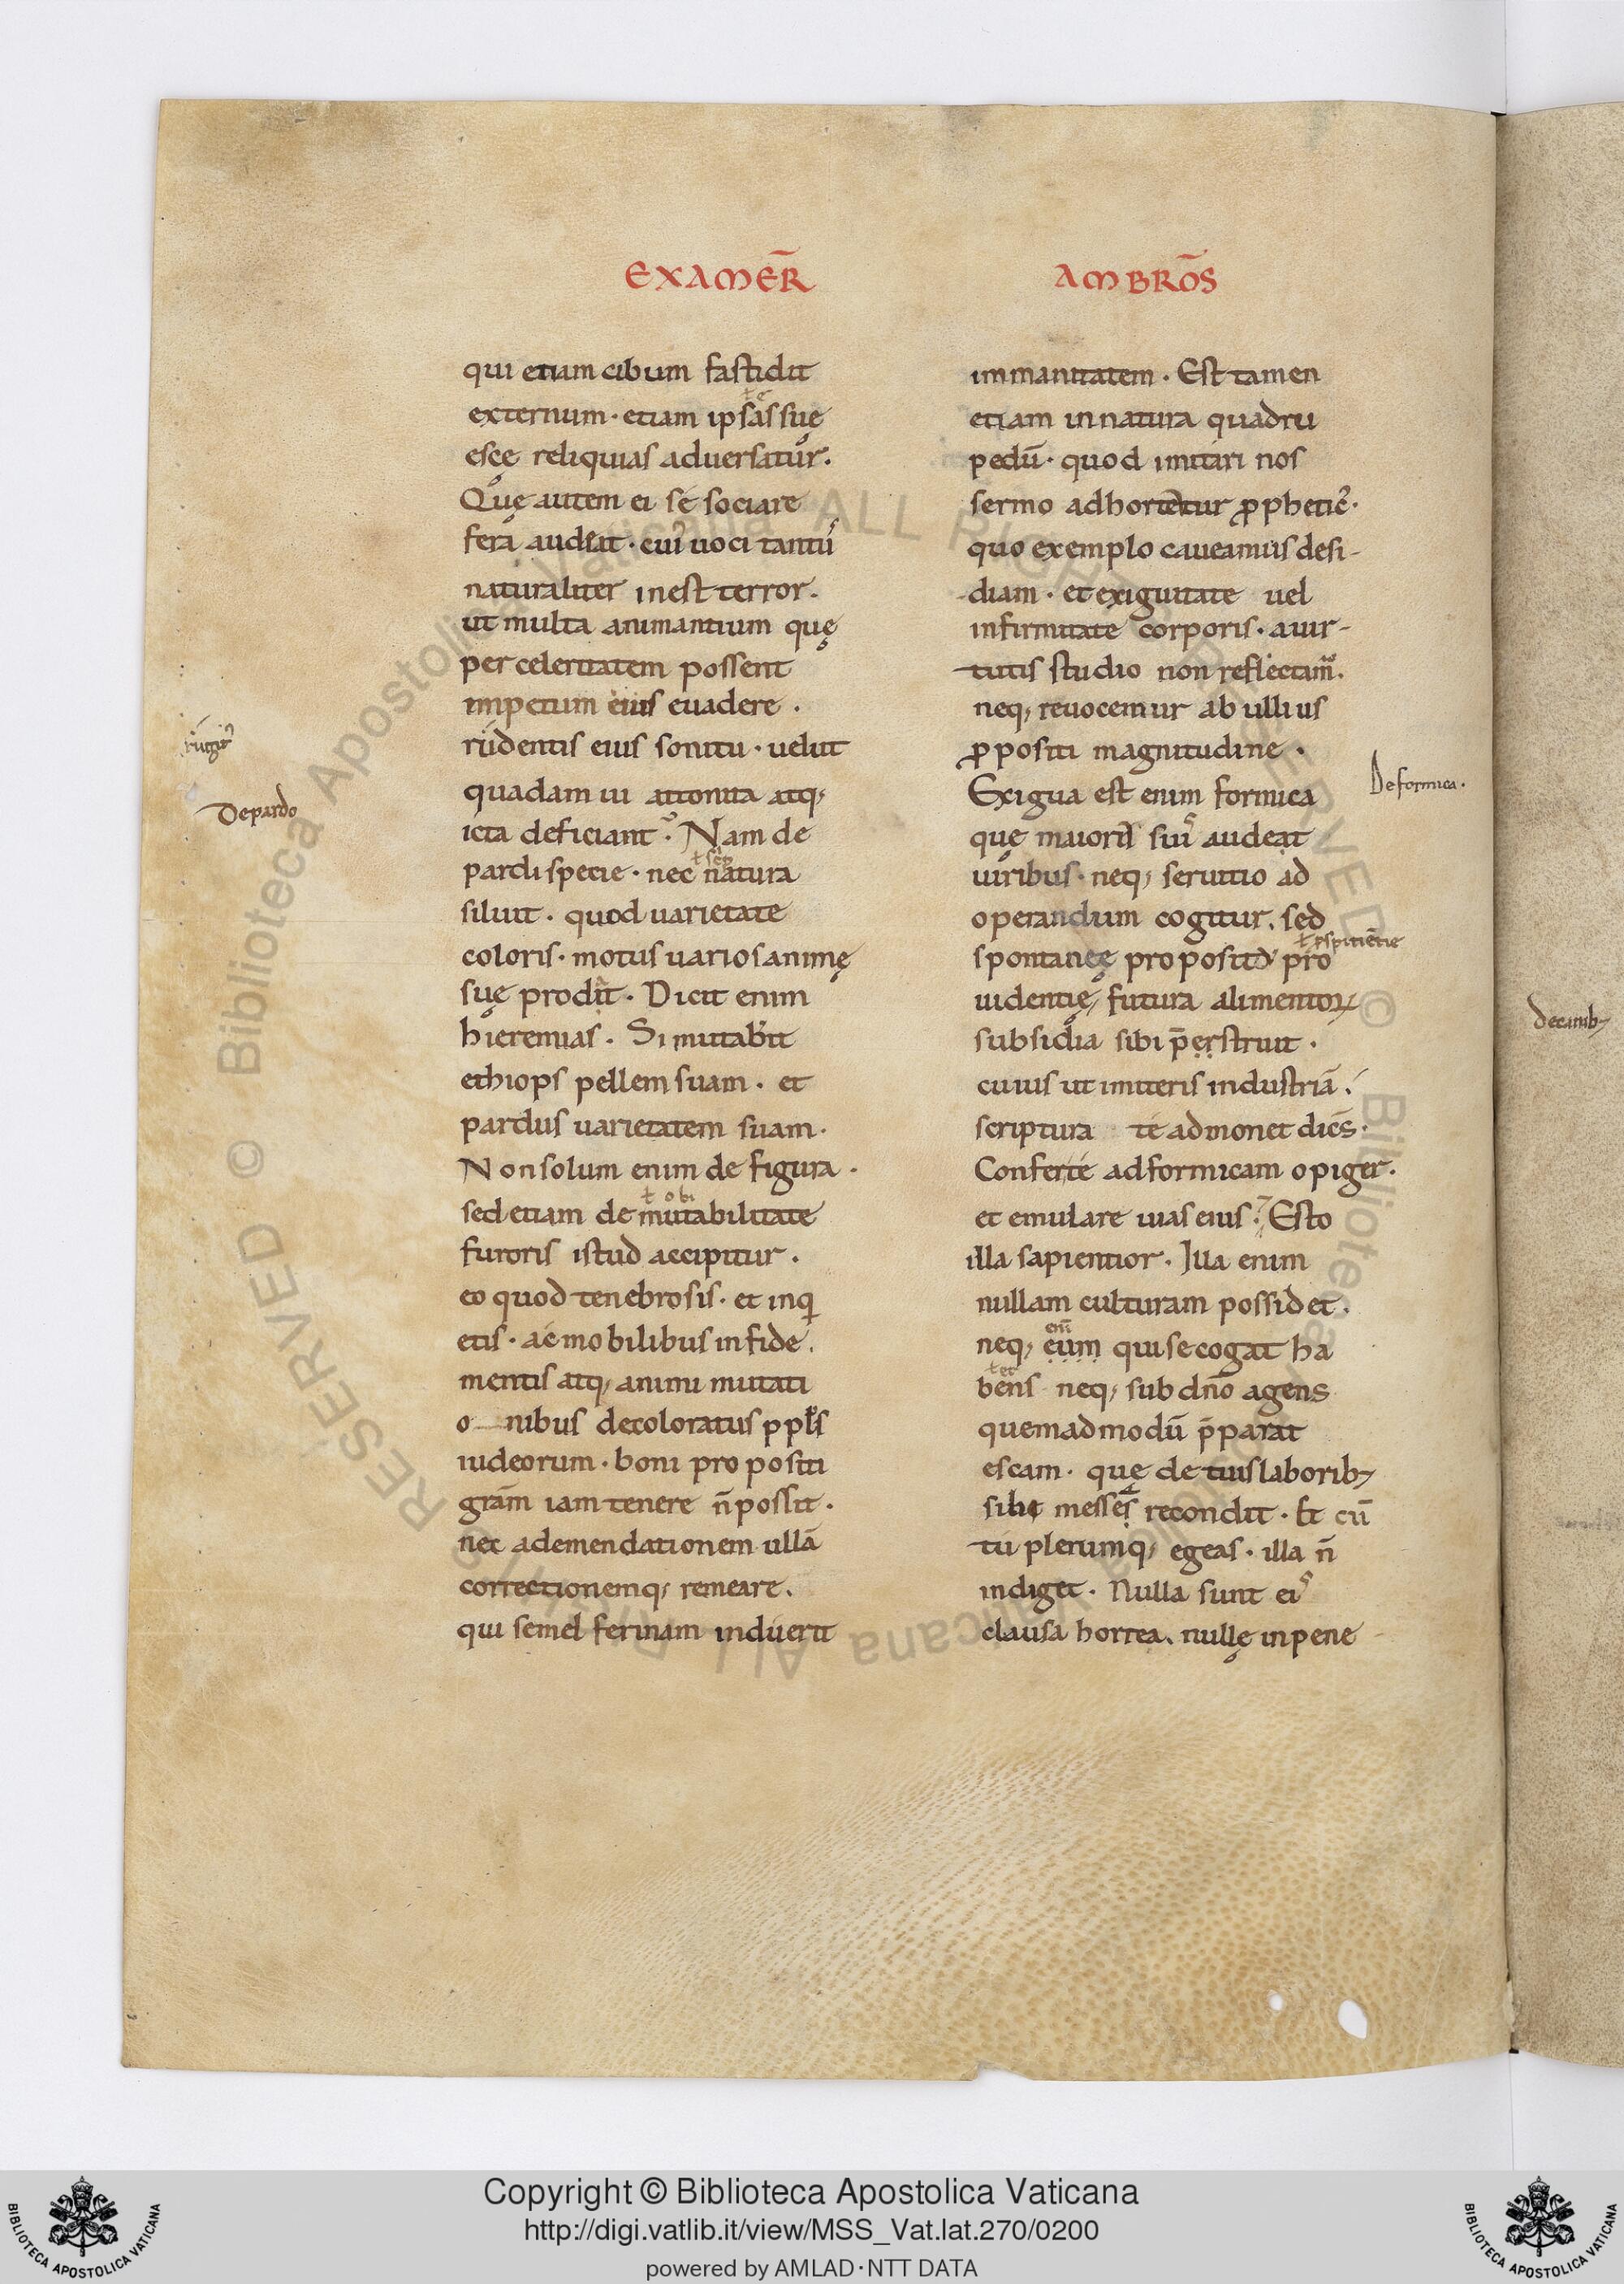 EXAMER̄
qui etiam cibum fastidit
externum · etiam ipsas suę
escę reliquias aduersatur.
Quę autem ei se sociare
fera audeat · cui᾽ uoci tantus
naturaliter inest terror.
ut multa animantium quę
per celeritatem possent
impetum eius euadere .
rudentis eius sonitu · uelut
quadam ui attonita atq;
icta deficiant? Nam de
pardi specie · nec natura
siluit · quod uarietate
coloris · motus uarios animę
suę prodit · Dicit enim
hieremias · Si mutabit
ethiops pellem suam · et
pardus uarietatem suam.
Non solum enim de figura .
sed etiam de mutabilitate
furoris istud accipitur .
eo quod tenebrosis · et inqi
etis · ac mobilibus infide.
mentis atq; animi mutati
o nibus decoloratus ppl̄s
iudeorum · boni propositi
gram̄ iam tenere n̄ possit ·
nec ademendationem ullā
correctionemq; remeare.
qui semel ferinam induerit
rugit᾽
De pardo
AMBRŌS
immanitatem · Est tamen
etiam in natura quadru
pedū · quod imitari nos
sermo adhortetur ꝓphetic᾽·
quo exemplo caueamus desi-
diam · et exiguitate uel
infirmitate corporis · a uir-
tutis studio non reflectam᾽.
neq; reuocemur ab ullius
ꝓpositi magnitudine ·
Exigua est enim formica
quę maiora suis audeat
uiribus · neq; seruitio ad
operandum cogitur. sed
ł ꝑspicientie
spontaneę proposito pro
uidentię futura alimentoꝝ
subsidia sibi p̄erstruit ·
cuius ut imiteris industriā.
scriptura te admonet dicēs·
Conferte ad formicam o piger.
et emulare uias eius · Esto
illa sapientior · Illa enim
nullam culturam possidet.
enī
neq; eum qui se cogat ha
ł et
bens neq; sub dn̄o agens
quemadmodū p̄parat
escam · quę de tuis laborib;
sibi messes recondit · Et cū
tu plerumq; egeas · illa n̄
indiget · Nulla sunt eis
clausa horrea. nullę inpene
De formica.
De canib;
Copyright © Biblioteca Apostolica Vaticana
http://digi.vatlib.it/view/MSS_Vat.lat.270/0200
powered by AMLAD·NTT DATA
BIBLIOTECA APOSTOLICA VATICANA
BIBLIOTECA APOSTOLICA VATICANA